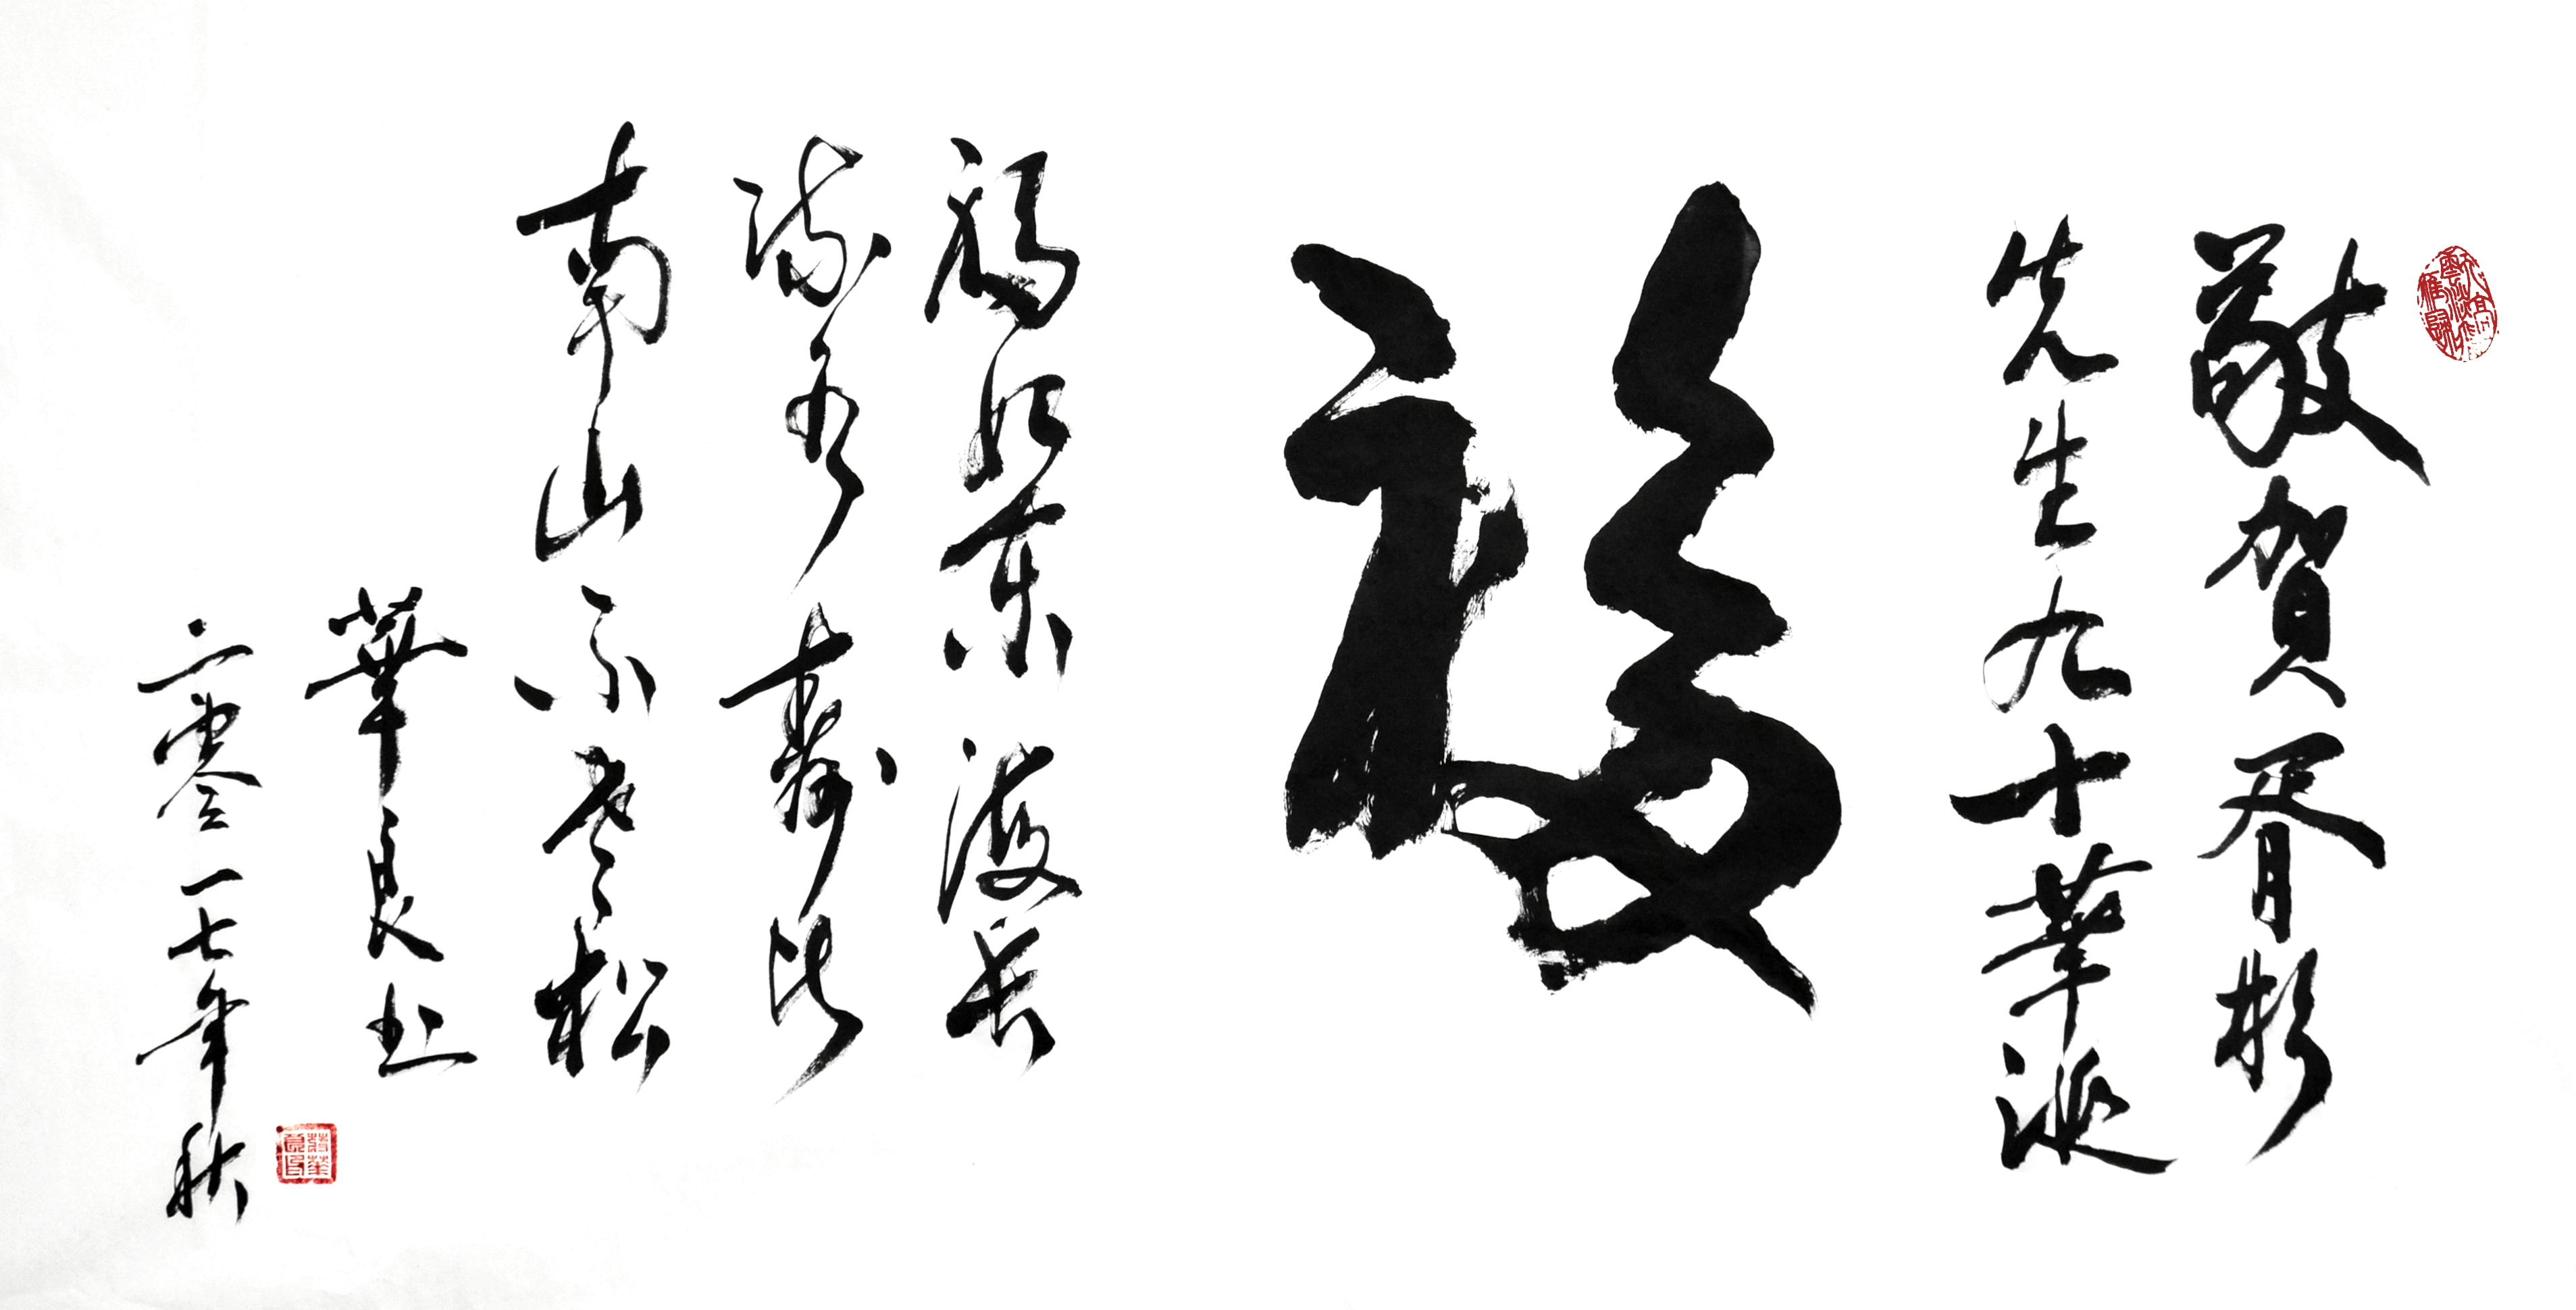 敬賀胥彬
先生九十華誕
福
福如東海長
流水壽比
南山不老松
華良書
二零一七年秋